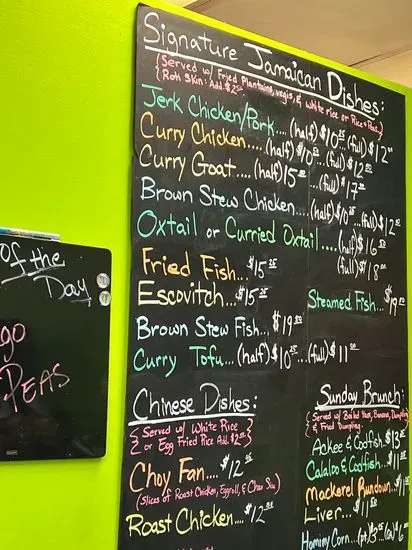 Signature Jamaican Dishes:
{Served w/ Fried Plantains, vegis, & white rice or Rice & Peas}
Roti Skin: Add. $2.50
Jerk Chicken/Pork....(half) $10.25 (full) $12
Curry Chicken....(half) $10 ...(full) $12
Curry Goat....(half) 15 ...(full) $17
Brown Stew Chicken...(half) $10 ...(full) $12
Oxtail or Curried Oxtail....(half) $16
(full) $18
Fried Fish...$15.25
Escovitch...$15.25
Steamed Fish...$19
Brown Stew Fish...$19.50
Curry Tofu...(half) $10 ...(full) $11.00
of the
Day
go
PEAS
Chinese Dishes:
{Served w/ White Rice
or Egg Fried Rice Add. $2.00}
Choy Fan....$12
(Slices of Roast Chicken, Eggroll, & Char Siu)
Roast Chicken....$12.50
Sunday Brunch:
{Served w/ Boiled Yam, Banana, Dumpling
& Fried Dumpling
Ackee & Codfish..$13
Calaloo & Codfish...$11
Mackerel Rundown...$11
Liver...$11.50
Hominy Corn...(pt) $3.25